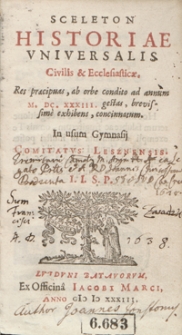 SCELETON
HISTORIAE
VNIVERSALIS
Civilis & Ecclesiasticæ,
Res præcipuas, ab orbe condito ad annum
M. DC. XXXIII. gestas, brevis-
simè exhibens, concinnatum.
In usum Gymnasij
COMITATVS LESZNENSIS.
I. I. S. P.
Sum
Francisci
A. D. 1638.
LVGDVNI BATAVORVM,
Ex Officinâ IACOBI MARCI,
ANNO CIↃ IↃ XXXIII.
Author Joannes
6.683